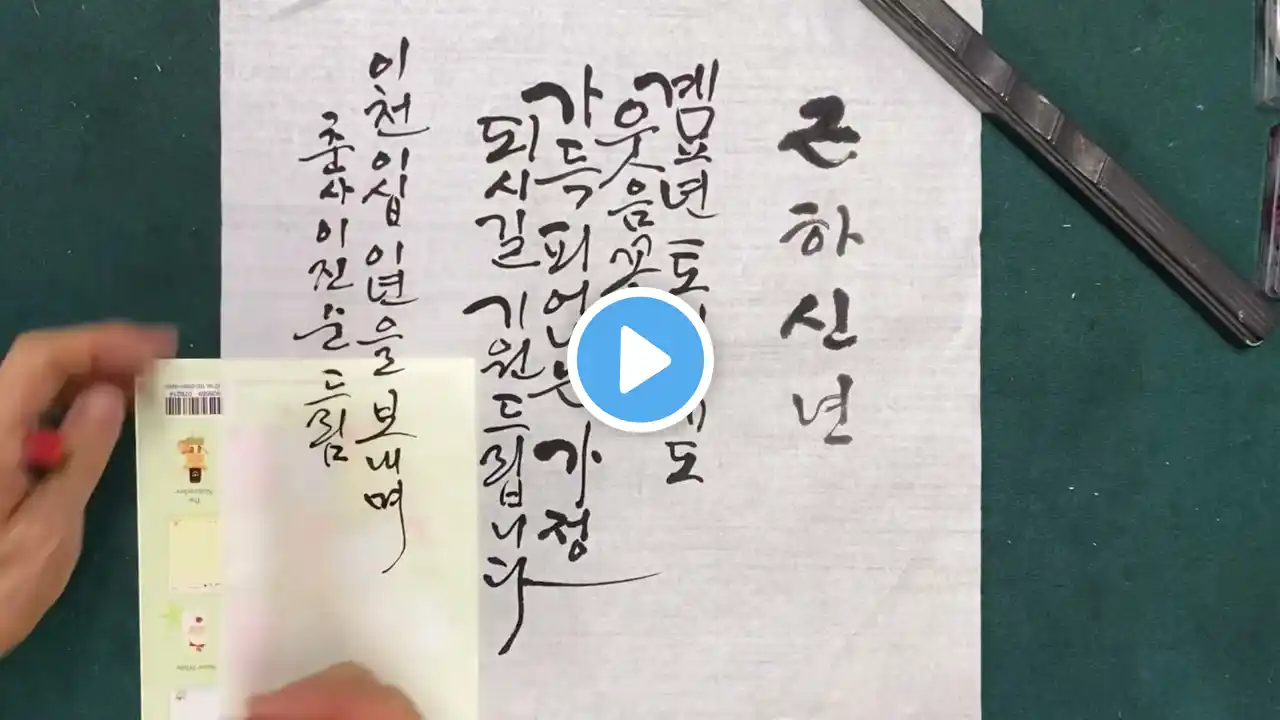 근하신년
계묘년 토 도
웃음꽃
가득 가정
되시길 기원드립니다
이천이십이년을 보내며
춘사 이진순 드림